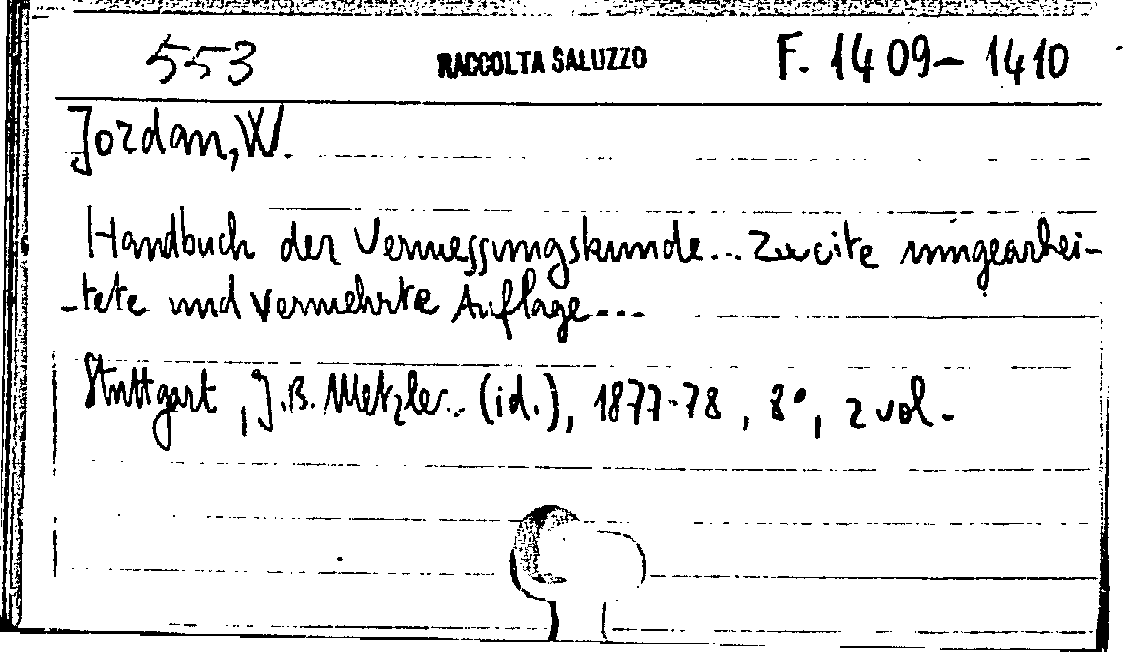 553 RACCOLTA SALUZZO F. 1409-1410
Jordan, W.
Handbuch der Vermessungskunde... Zweite umgearbei-
-tete und vermehrte Auflage...
Stuttgart, J.B. Metzler.. (id.), 1877-78, 8°, 2 vol.